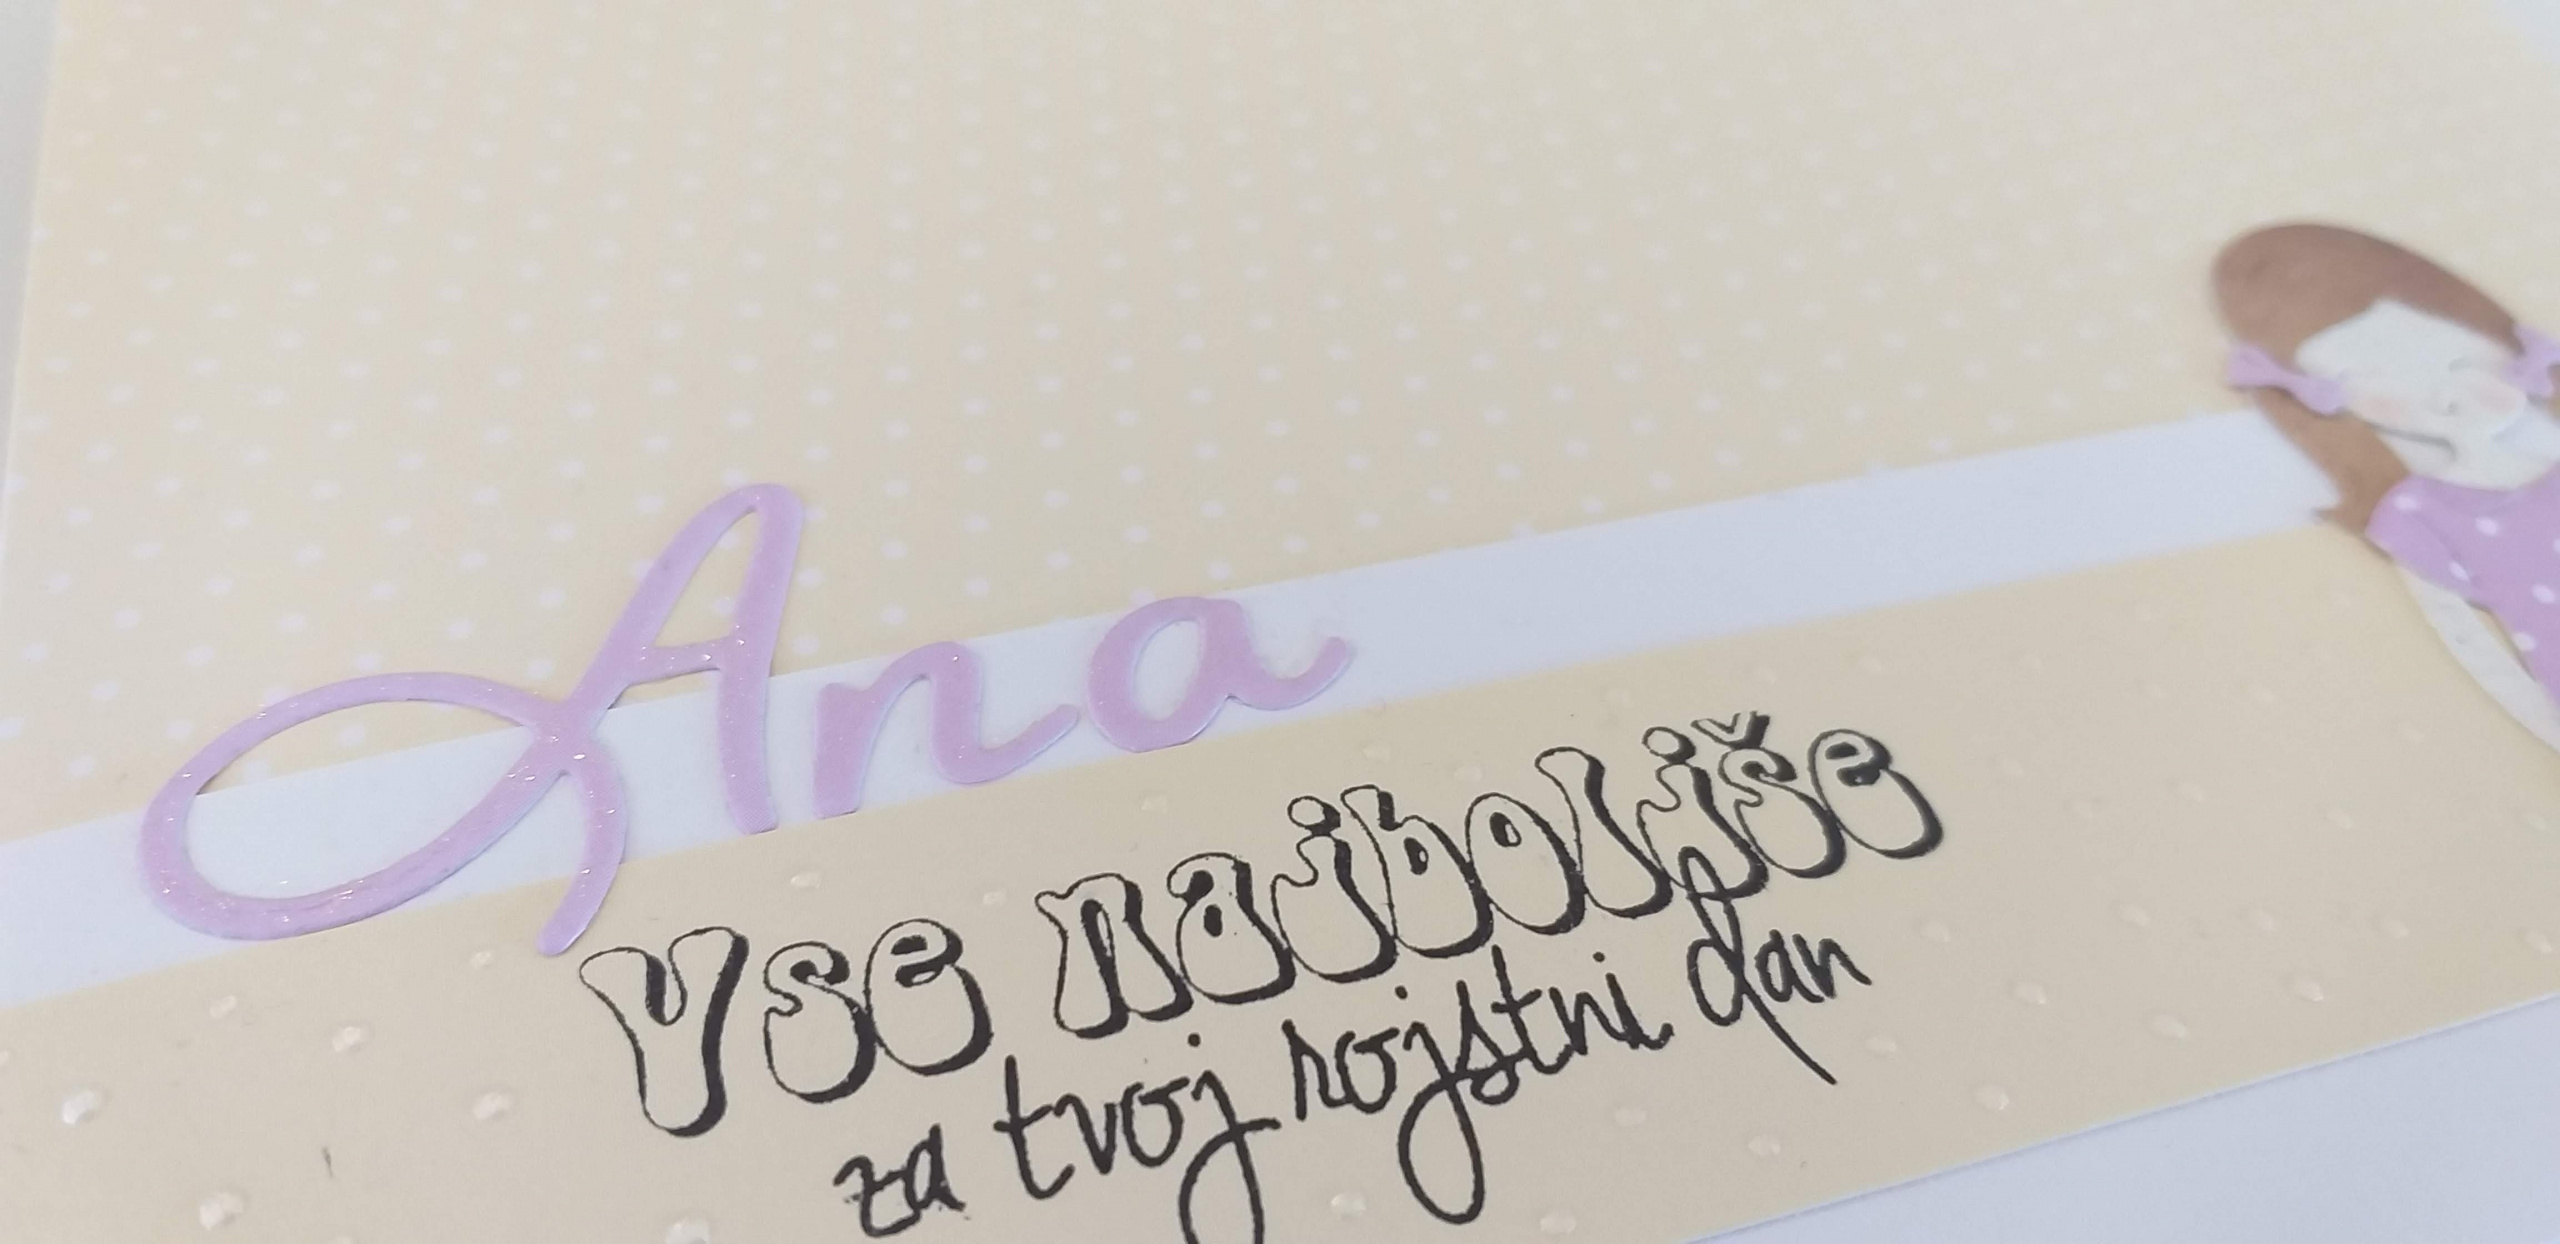 Ana
Vse najboljše
za tvoj rojstni dan